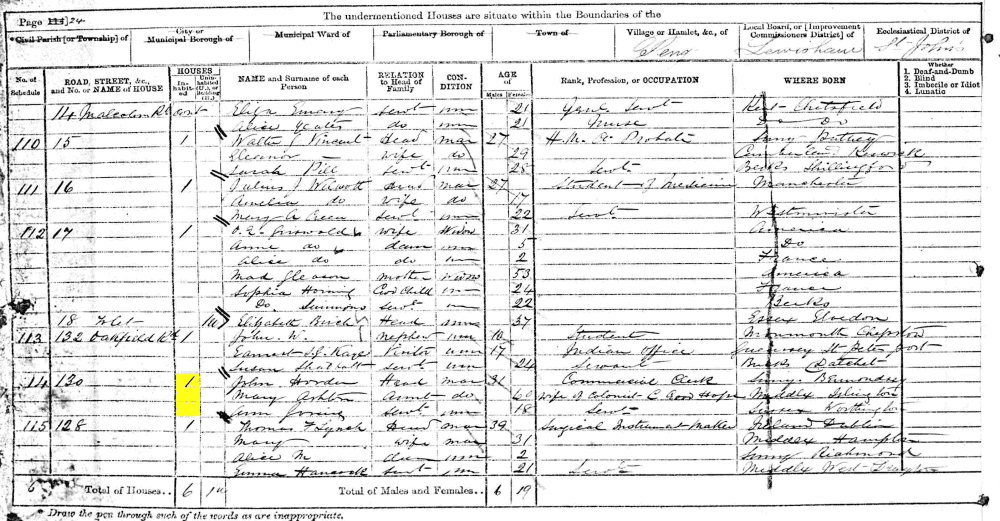 Page 114] 24
The undermentioned Houses are situate within the Boundaries of the
* Civil Parish [or Township] of
City or Municipal Borough of
Municipal Ward of
Parliamentary Borough of
Town of
Village or Hamlet, &c., of
Local Board, or [Improvement Commissioners District] of
Lewisham
Ecclesiastical District of
St John's
No. of Schedule
ROAD, STREET, &c., and No. or NAME of HOUSE
HOUSES
Inhabited
Uninhabited (U.), or Building (B.)
NAME and Surname of each Person
RELATION to Head of Family
CONDITION
AGE of
Males
Females
Rank, Profession, or OCCUPATION
WHERE BORN
Whether
1. Deaf-and-Dumb
2. Blind
3. Imbecile or Idiot
4. Lunatic
14 Malcolm Rd cont Eliza Emery Servt unm 21 Genl Servt Kent Chelsfield
Alice do unm 21 Nurse Do Do
110 15 1 Walter J Vincent Head mar 27 H.M. Ct Probate Surry Putney
Eleanor — wife do 29 Cumberland Keswick
Sarah Pill servt unm 28 Servt Berks Shillingford
111 16 1 Julius J head mar 27 Student of Medicine Manchester
Amelia do wife do 17
Mary A Green servt unm 22 Servt Westminster
112 17 1 O. E. Griswold wife 31 America
Anne do daur unm 5 Do
Alice do do un 2 France
Mad Gleason mother widow 53 America
Sophia God Child un 24 France
Do Simmons servt un 22 Berks
18 To let 1U Elizabeth Birch Head unm 37 Essex
113 132 Oakfield Rd 1 John W. nephew unm 10 Student Monmouth Chepstow
Earnest S.J. Kaye Visitor unm 17 Indian Office Guernsey St Peters Port
Susan servt unm 24 Servant Bucks Datchet
114 130 1 John Hooden Head mar 31 Commercial Clerk Surry Bermondsey
Mary Ashton Aunt do 60 wife of Colonist C. Good Hope Middlex Islington
Ann servt un 18 Servt Sussex Worthing
115 128 1 Thomas F Lynch Head mar 39 Surgical Instrument Maker Ireland Dublin
Mary wife mar 31 Middlex Hampton
Alice M daur un 2 Surry Richmond
Emma Hancock servt unm 21 Servt Middlx West Drayton
6 Total of Houses.. 6 1U Total of Males and Females.. 6 19
* Draw the pen through such of the words as are inappropriate.